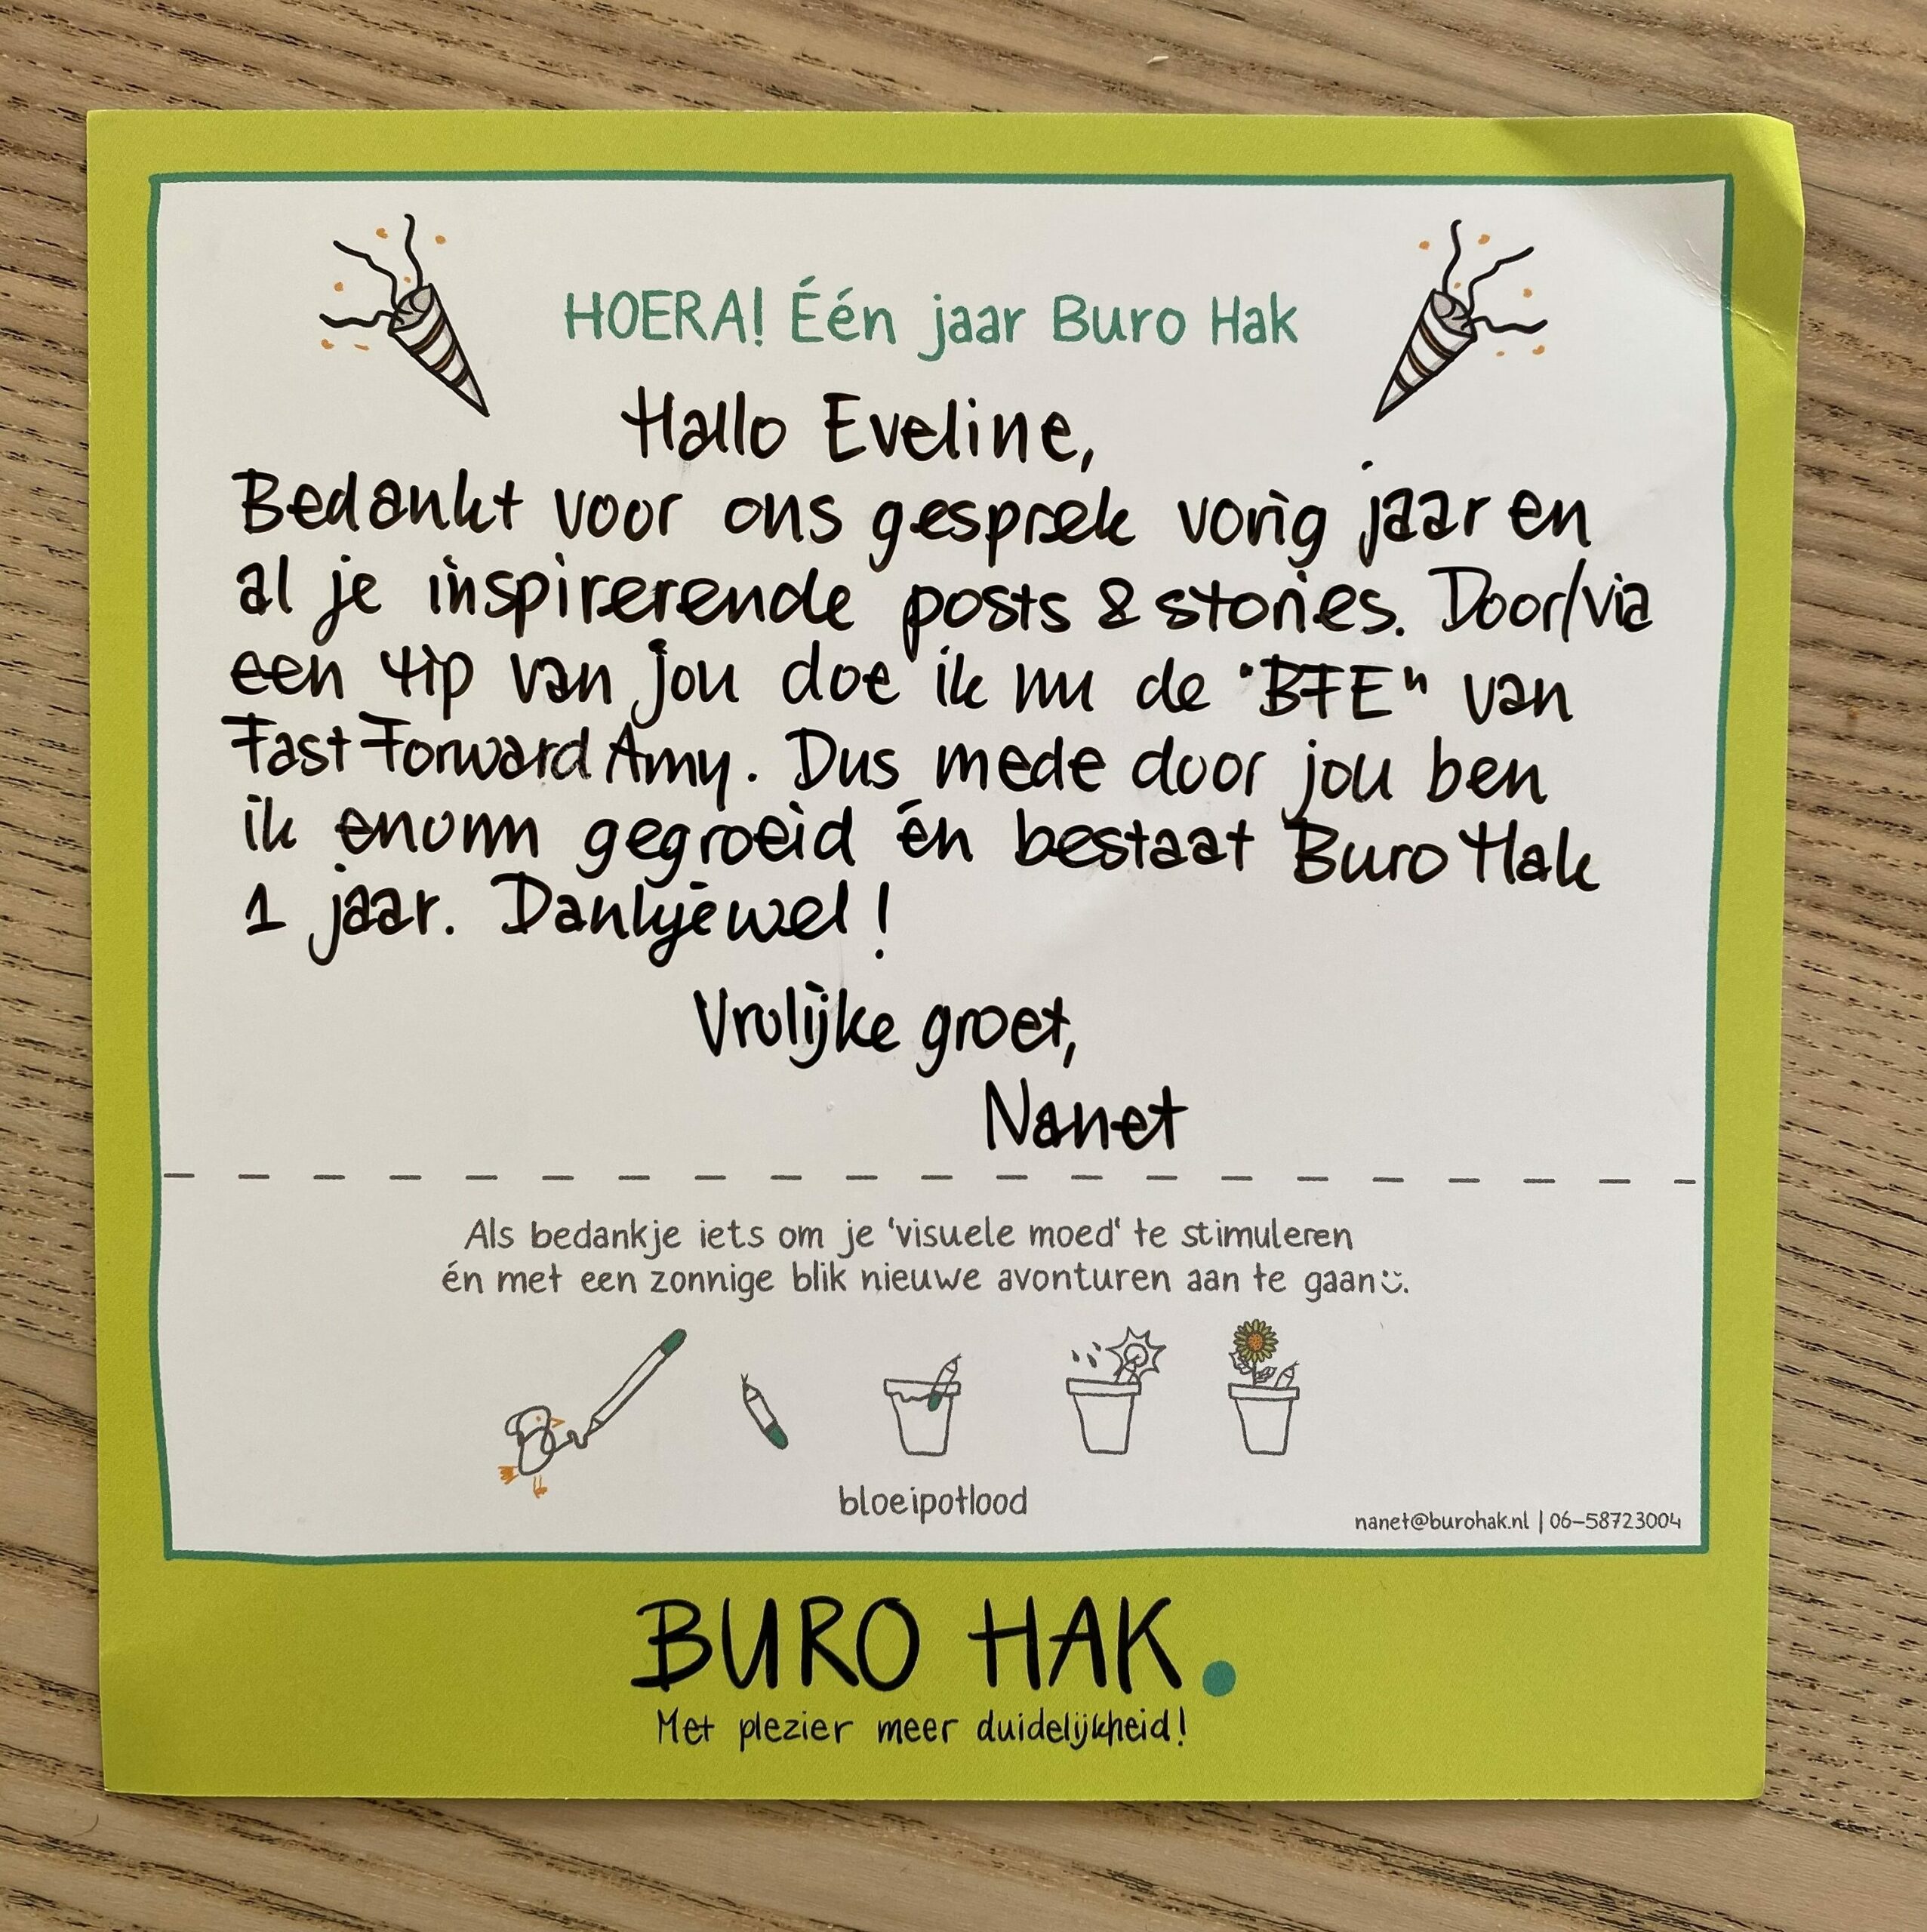 HOERA! Één jaar Buro Hak
Hallo Eveline,
Bedankt voor ons gesprek vorig jaar en
al je inspirerende posts & stories. Door/via
een tip van jou doe ik nu de "BFE" van
FastForwardAmy. Dus mede door jou ben
ik enorm gegroeid én bestaat Buro Hak
1 jaar. Dankjewel!
Vrolijke groet,
Nanet
Als bedankje iets om je 'visuele moed' te stimuleren
én met een zonnige blik nieuwe avonturen aan te gaan.
bloeipotlood
nanet@burohak.nl | 06-58723004
BURO HAK.
Met plezier meer duidelijkheid!